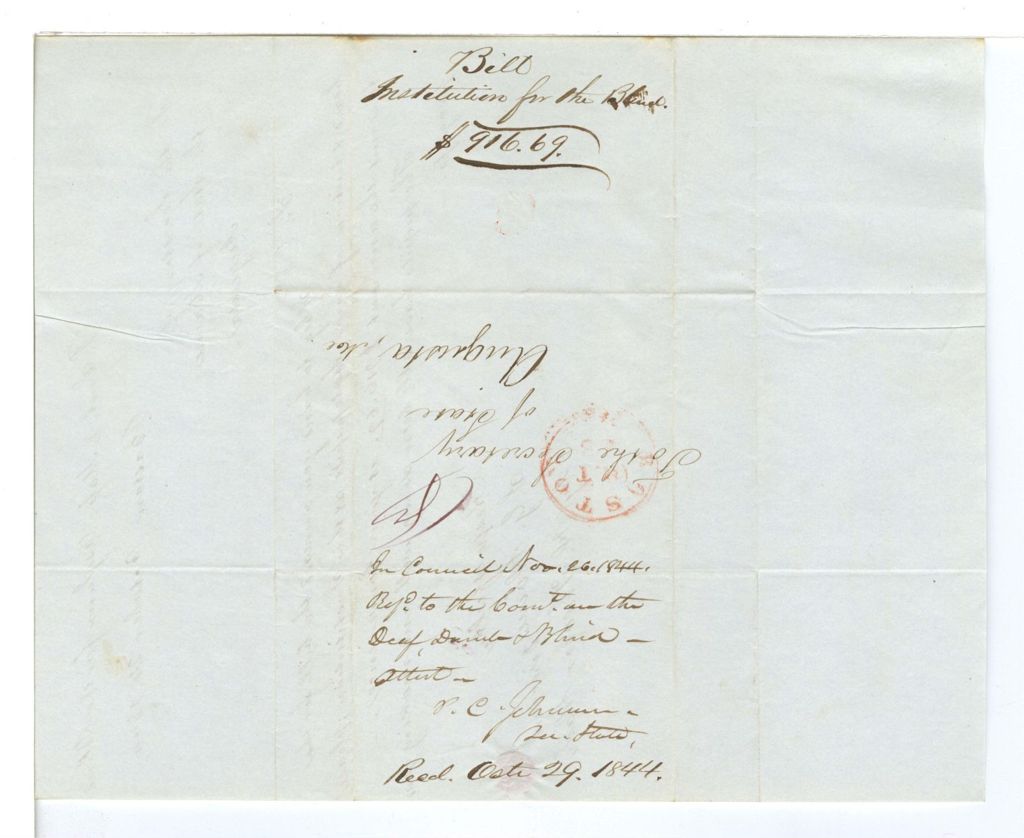 Bill
Institution for the Blind.
$916.69.
To the Secretary
of State
Augusta, Me.
BOSTON
OCT
MS
In Council Nov. 26. 1844.
Refd. to the Comt. on the
Deaf, Dumb & Blind –
Attest –
P. C. Johnson –
Sec. State,
Recd. Octr 29. 1844.